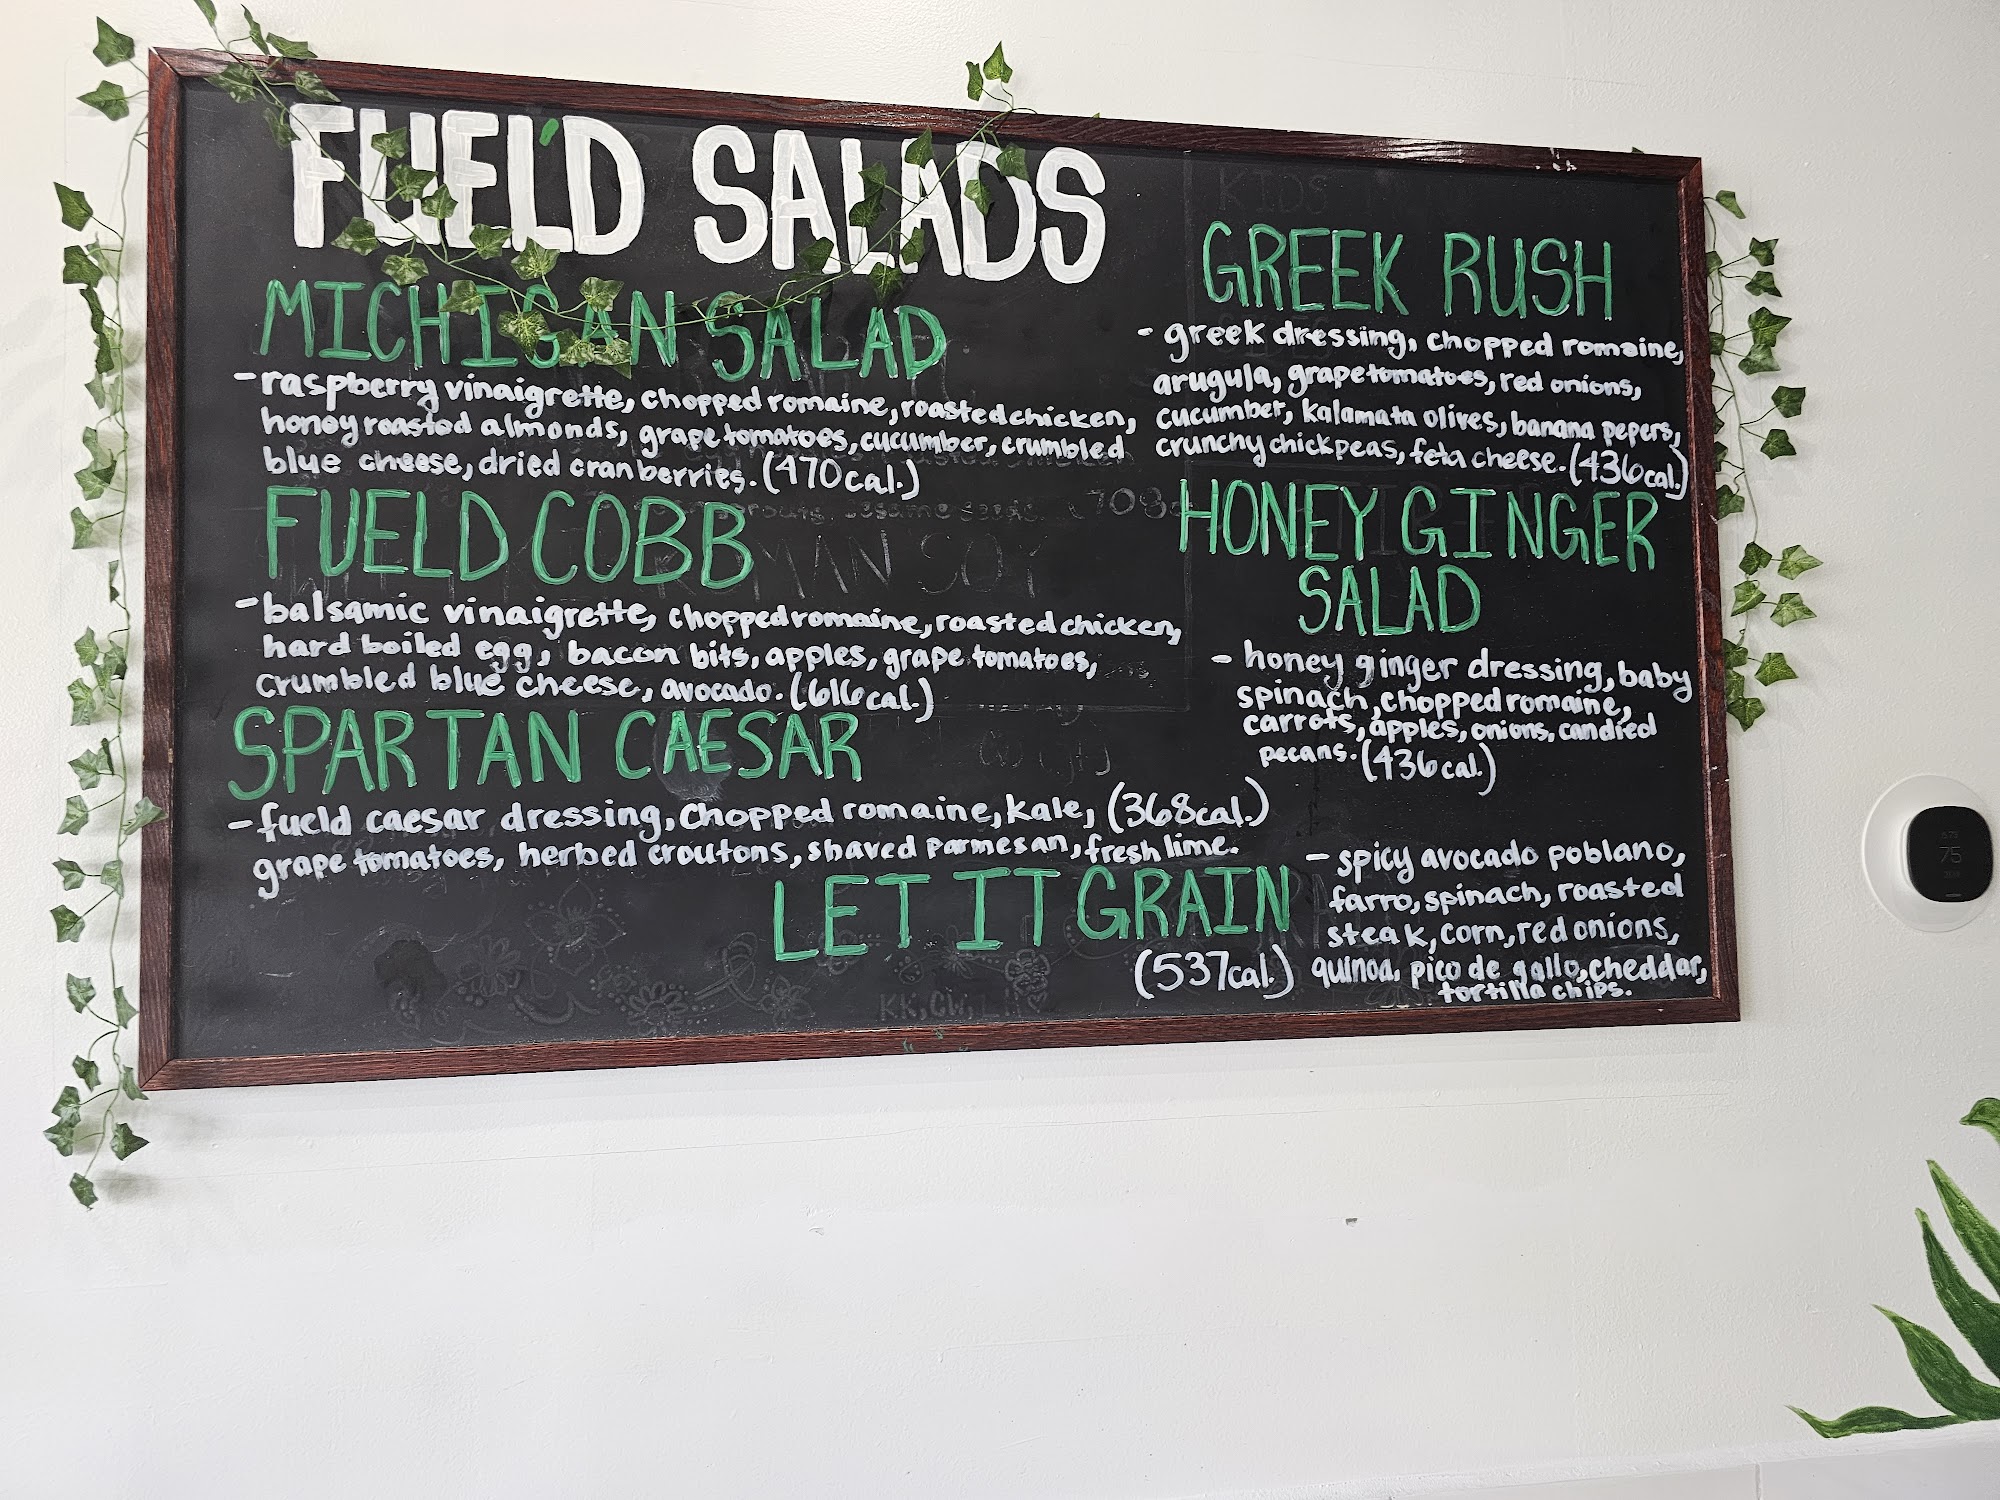 FUEL'D SALADS
MICHIGAN SALAD
- raspberry vinaigrette, chopped romaine, roasted chicken,
honey roasted almonds, grape tomatoes, cucumber, crumbled
blue cheese, dried cranberries. (470cal.)
FUELD COBB
- balsamic vinaigrette, chopped romaine, roasted chicken,
hard boiled egg, bacon bits, apples, grape tomatoes,
crumbled blue cheese, avocado. (616cal.)
SPARTAN CAESAR
- fueld caesar dressing, chopped romaine, kale, (368cal.)
grape tomatoes, herbed croutons, shaved parmesan, fresh lime.
GREEK RUSH
- greek dressing, chopped romaine,
arugula, grape tomatoes, red onions,
cucumber, kalamata olives, banana pepers,
crunchy chickpeas, feta cheese. (436cal.)
HONEY GINGER
SALAD
- honey ginger dressing, baby
spinach, chopped romaine,
carrots, apples, onions, candied
pecans. (436cal.)
LET IT GRAIN
(537cal.)
- spicy avocado poblano,
farro, spinach, roasted
steak, corn, red onions,
quinoa, pico de gallo, cheddar,
tortilla chips.
75